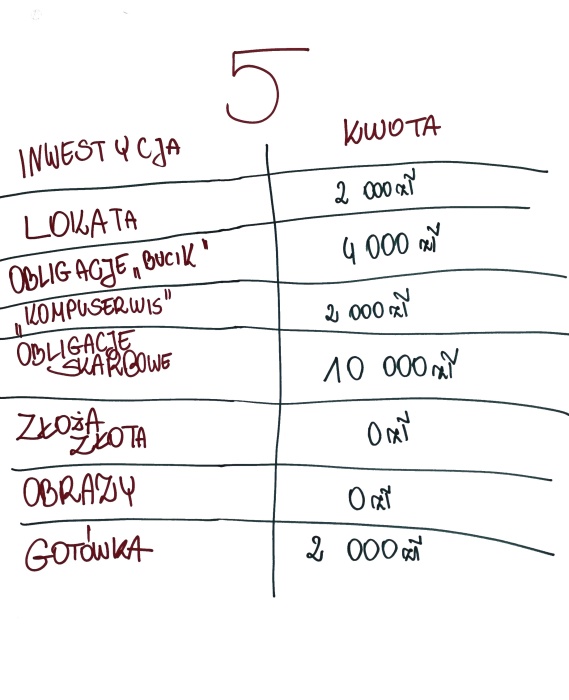 5
INWESTYCJA KWOTA
LOKATA 2 000 zł
OBLIGACJE „BUCIK" 4 000 zł
„KOMPUSERWIS" 2 000 zł
OBLIGACJE
SKARBOWE 10 000 zł
ZŁOŻA
ZŁOTA 0 zł
OBRAZY 0 zł
GOTÓWKA 2 000 zł